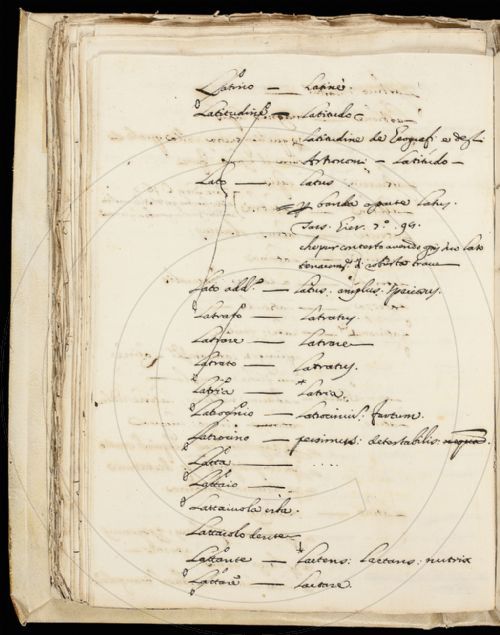 Latino — Latinè.
Latitudine — Latitudo
Latitudine de Geografi e degl'
Astronomi — Latitudo —
Lato — Latus
banda o parte Latus.
Tars. Gier. 7º. 94.
che pur concerto avendo già due lato
e robusta trave
Lato add.º — Latus. amplus. spatiosus.
Latrato — Latratus
Latrare — Latrare
Latrato — Latratus.
Latria — Latria.
Latrocinio — Latrocinium. furtum.
— pessimus: detestabilis.
Latta — ....
Lattaio —
Lattaiuola erba.
Lattaiolo dente
Lattante — Lactens: Lactans: nutrix
Lattare — Lactare.